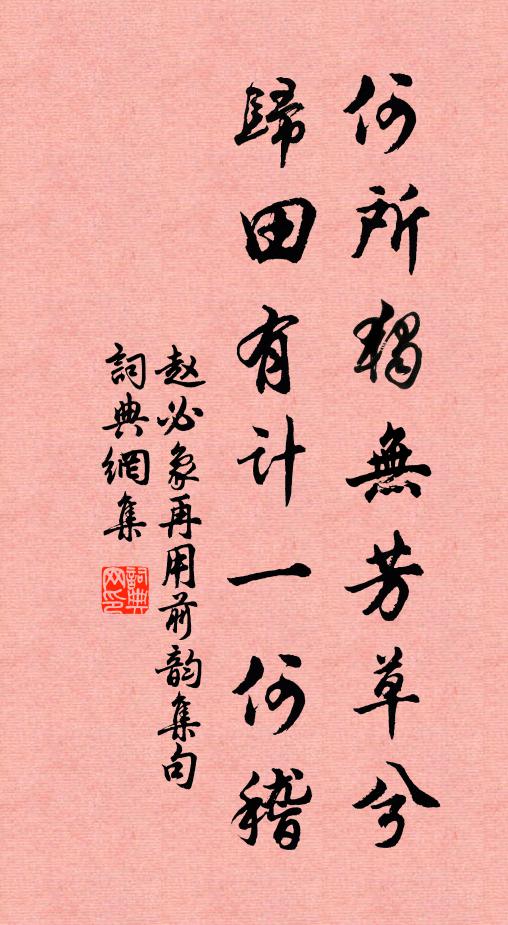 何所獨無芳草兮
歸田有计一何稽
赵必象再用前韵集句
詞典網集
詞典网印